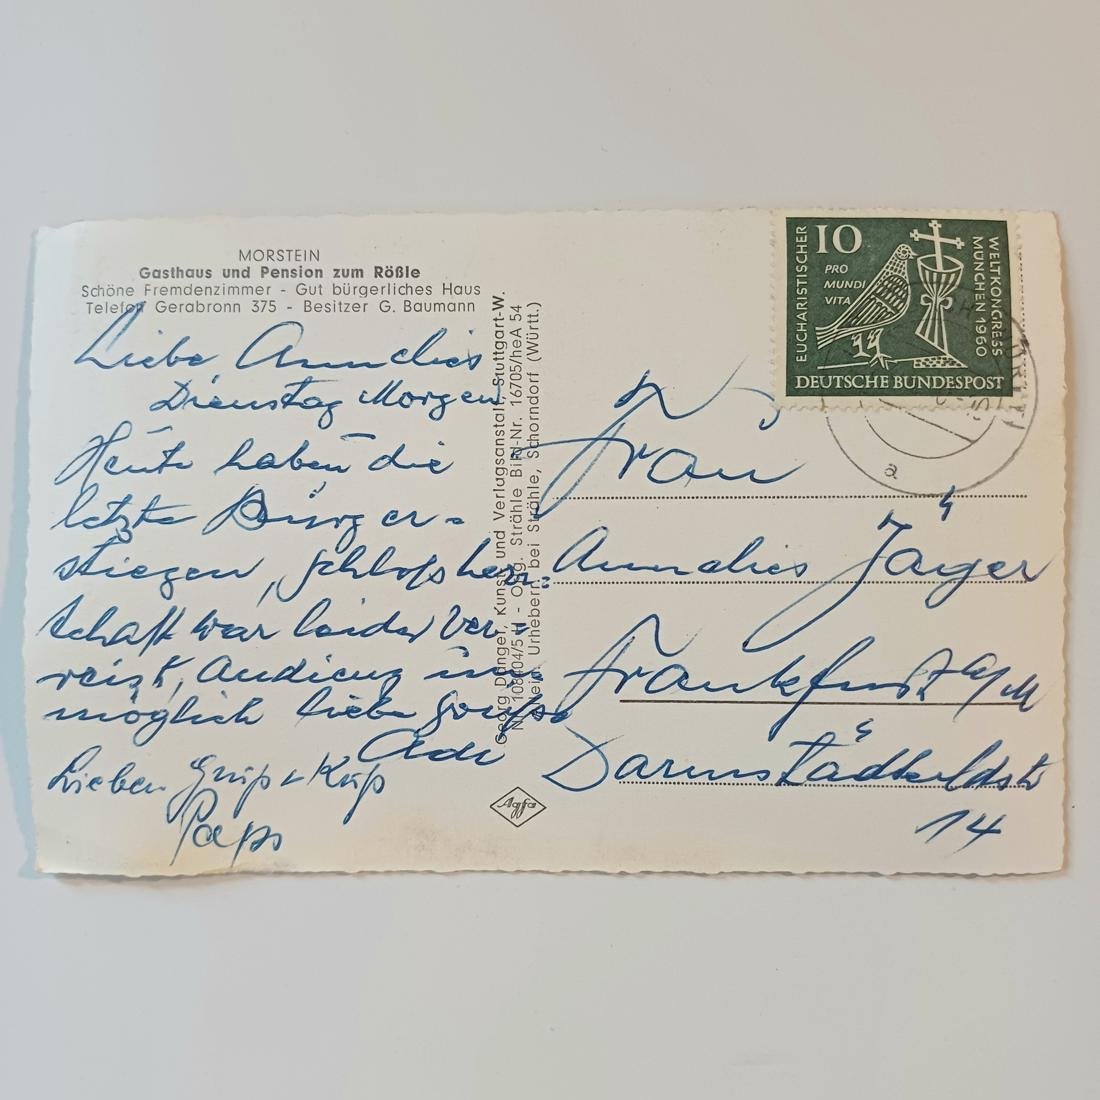 MORSTEIN
Gasthaus und Pension zum Rößle
Schöne Fremdenzimmer - Gut bürgerliches Haus
Telefon Gerabronn 375 - Besitzer G. Baumann
Liebe Annelies
Dienstag Morgen
Heute haben die
letzte Bürger-
stiegen, Schloßherr-
schaft war leider ver-
reist, Audienz un-
möglich liebe Grüße
Lieben Gruß + Kuß
Paps
Georg Danger, Kunst- und Verlagsanstalt, Stuttgart-W.
Strähle Bild-Nr. 16705/heA 54
Urhebern bei Strähle, Schorndorf (Württ.)
Agfa
10
PRO
MUNDI
VITA
EUCHARISTISCHER
WELTKONGRESS
MÜNCHEN 1960
DEUTSCHE BUNDESPOST
a
Frau
Annelies Jäger
Frankfurt a/M
14